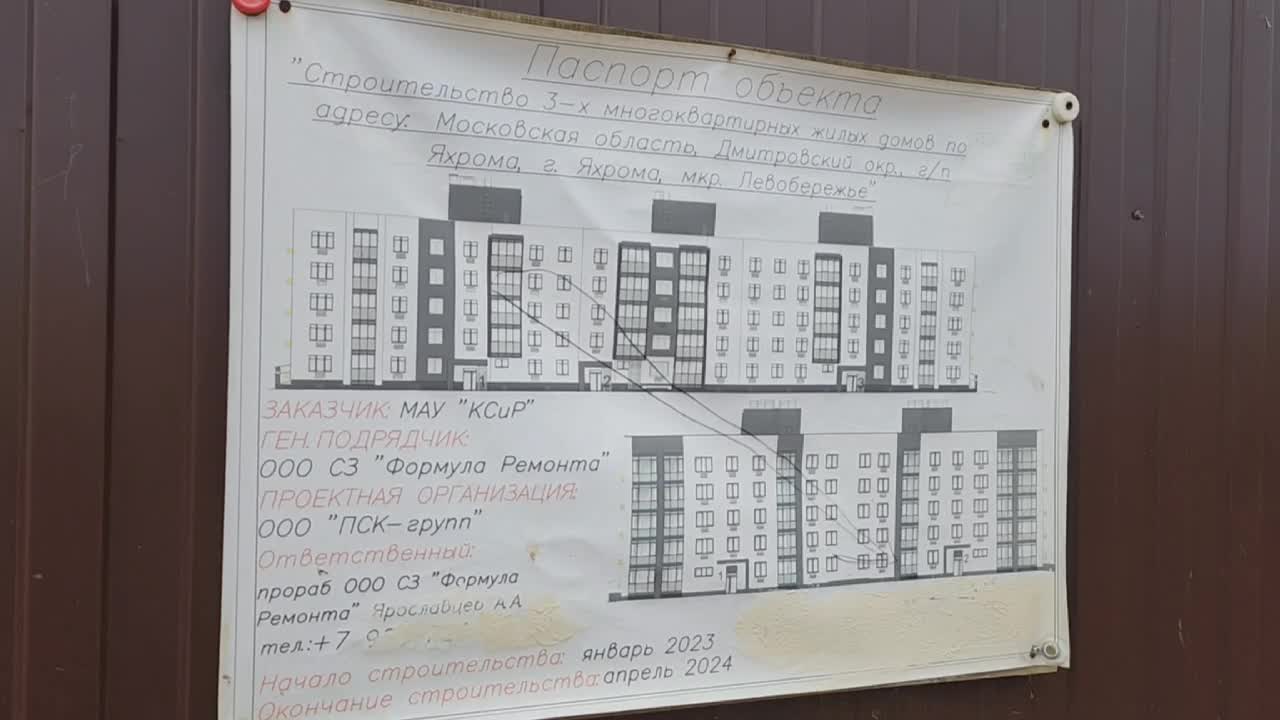 Паспорт объекта
"Строительство 3-х многоквартирных жилых домов по
адресу: Московская область, Дмитровский окр., г/п
Яхрома, г. Яхрома, мкр. Левобережье"
1
2
3
ЗАКАЗЧИК: МАУ "КСиР"
ГЕН.ПОДРЯДЧИК:
ООО СЗ "Формула Ремонта"
ПРОЕКТНАЯ ОРГАНИЗАЦИЯ:
ООО "ПСК-групп"
Ответственный:
прораб ООО СЗ "Формула
Ремонта" Ярославцев А.А
тел.:+7 9
1
2
Начало строительства: январь 2023
Окончание строительства: апрель 2024